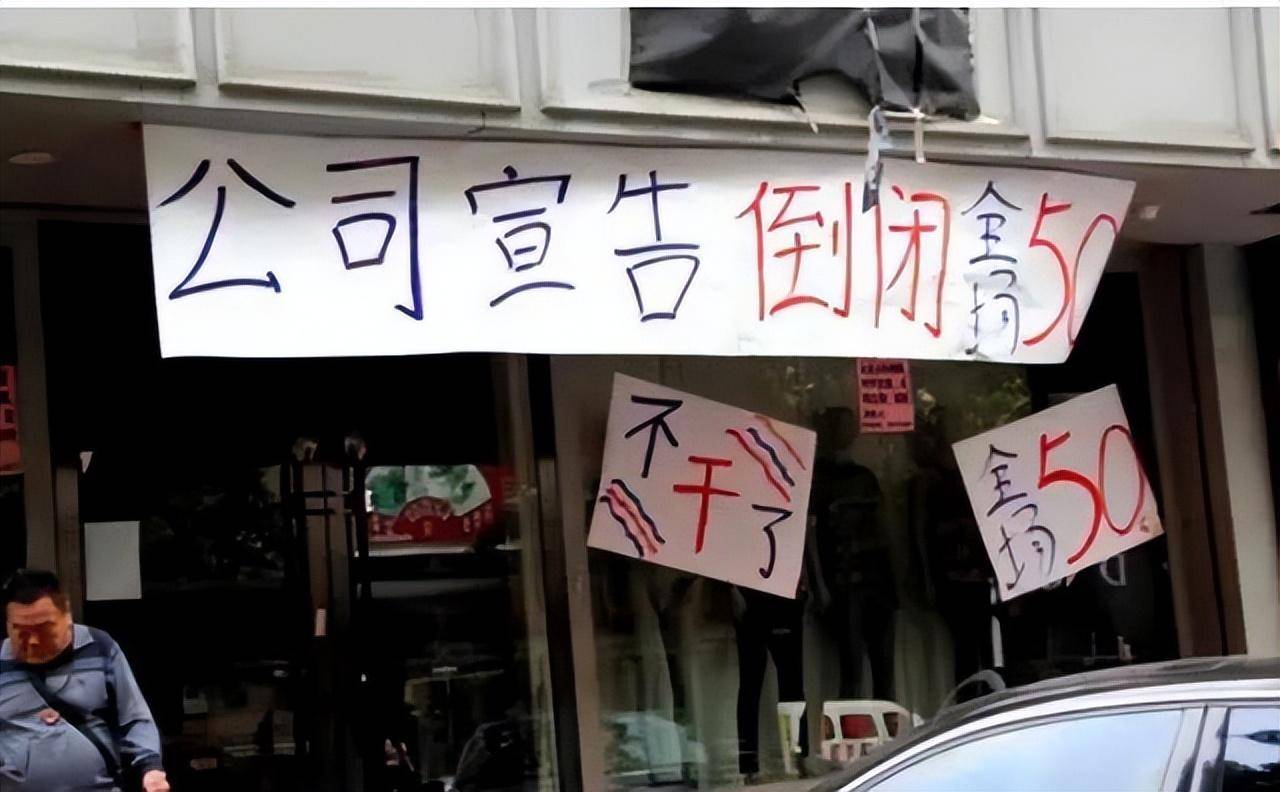 公司宣告倒闭全场50
不干了
全场50